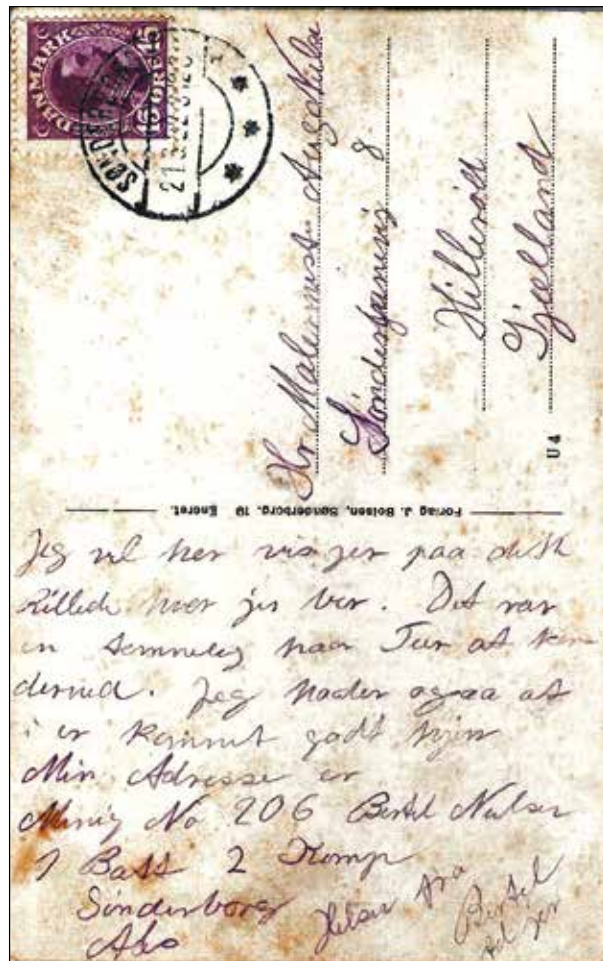 DANMARK
15 ØRE 15
21.3.22
Hr. Malermest. Aug.
8
Hillerød
Sjælland
U4
Forlag J. Boisen, Sønderborg. 19 Eneret.
Jeg vil her vise jer paa dette
Billede hvor jeg bor. Det var
en temmelig Tur at
derned. Jeg haaber ogsaa at
i er kommet godt hjem
Min Adresse er
Menig No 206 Bertel Nielsen
1 Batt 2 Komp
Sönderborg
Als
Hilsen fra
Bertel